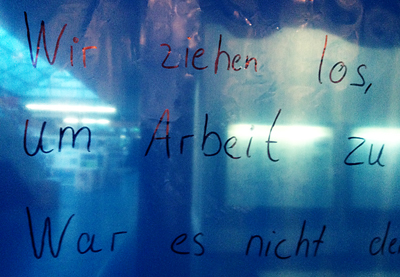 Wir ziehen los,
um Arbeit zu
War es nicht de